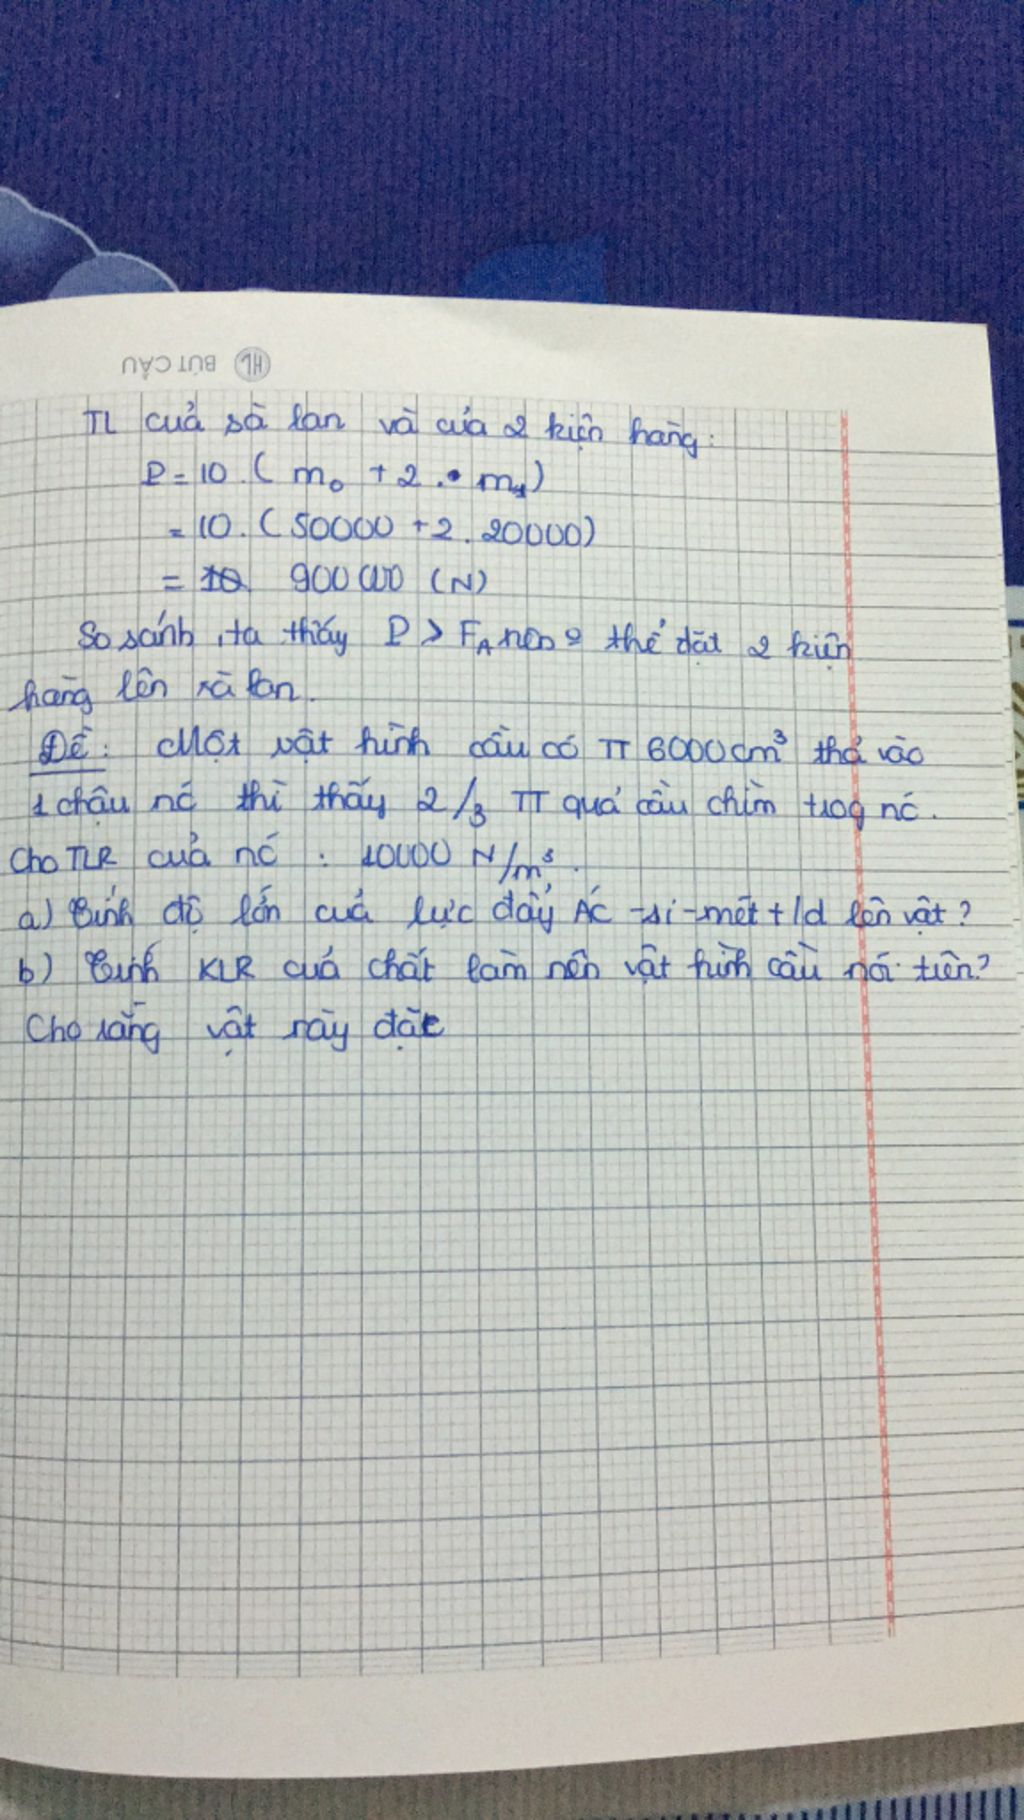 HL BÚT CẬU
TL cuả sà lan và của 2 kiện hàng:
P = 10. ( m₀ + 2 . m₁)
= 10. (50000 + 2. 20000)
= 900000 (N)
So sánh, ta thấy P > F_A nên thể đặt 2 kiện
hàng lên xà lan.
Đề: Một vật hình cầu có TT 6000cm³ thả vào
1 chậu nc thì thấy 2/3 TT quả cầu chìm trog nc.
Cho TLR cuả nc : 10000 N/m³.
a) Tính độ lớn cuả lực đẩy Ác-si-mét t/d lên vật?
b) Tính KLR cuả chất làm nên vật hình cầu nói trên?
Cho rằng vật này đặc